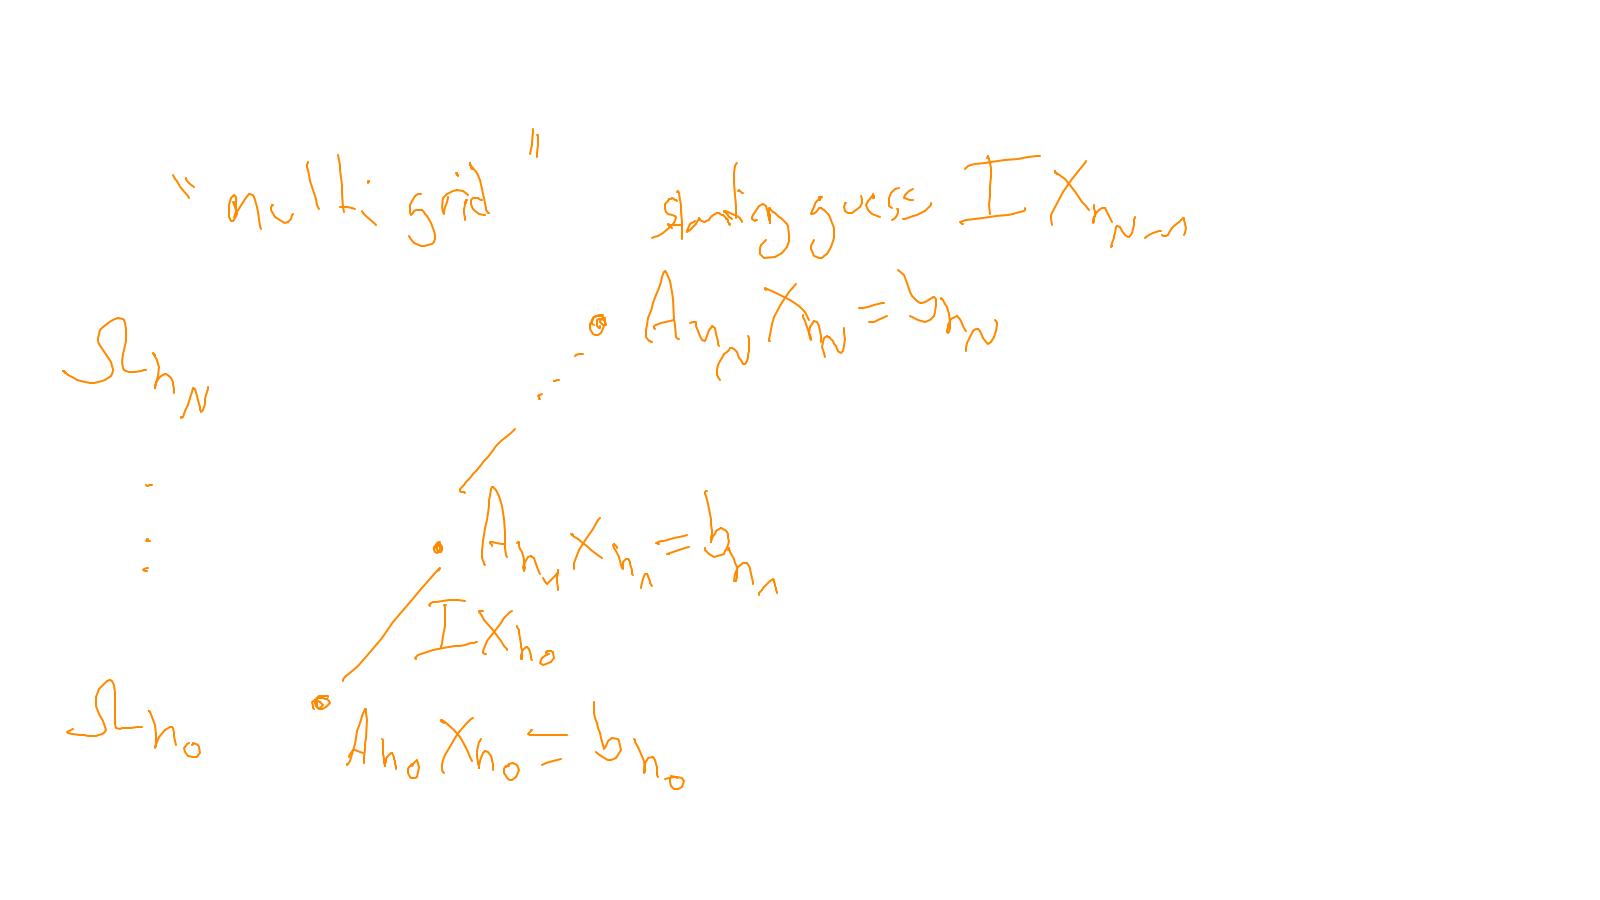 "multigrid" starting guess I x_{h_{N-1}}
Ω_{h_N} A_{h_N} x_{h_N} = b_{h_N}
⋮ A_{h_1} x_{h_1} = b_{h_1}
I x_{h_0}
Ω_{h_0} A_{h_0} x_{h_0} = b_{h_0}